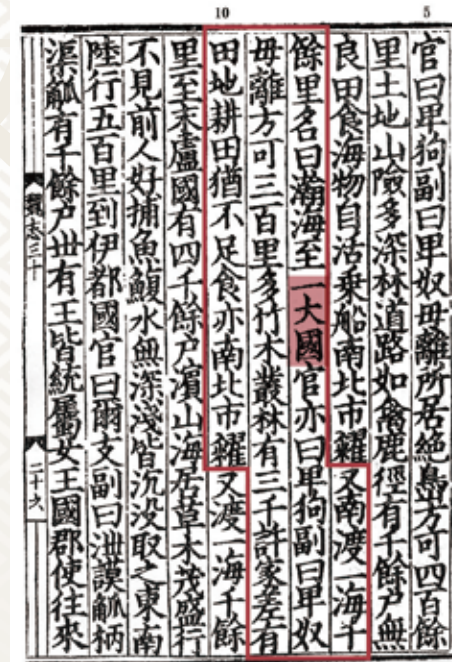 5
10
官曰卑狗副曰卑奴毋離所居絶㠀方可四百餘
里土地山險多深林道路如禽鹿徑有千餘户無
良田食海物自活乗船南北市糴又南渡一海千
餘里名曰瀚海至一大國官亦曰卑狗副曰卑奴
毋離方可三百里多竹木叢林有三千許家差有
田地耕田猶不足食亦南北市糴又渡一海千餘
里至末盧國有四千餘户濵山海居草木茂盛行
不見前人好捕魚鰒水無深淺皆沉没取之東南
陸行五百里到伊都國官曰爾支副曰泄謨觚柄
渠觚有千餘户丗有王皆統屬女王國郡使往來
魏志三十
二十六